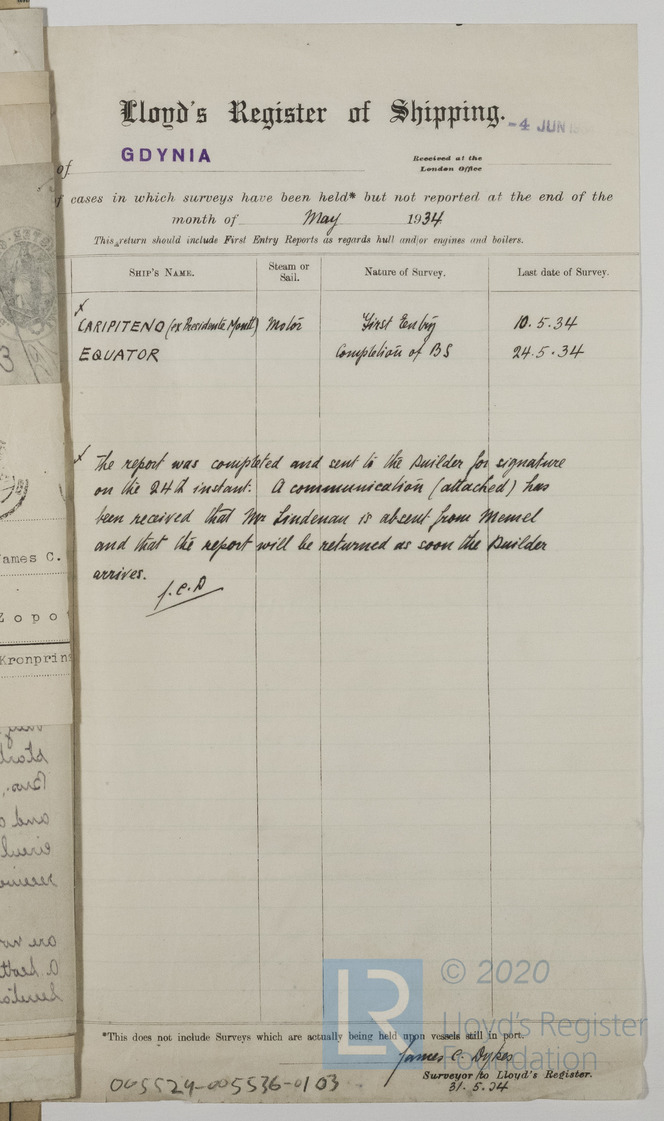 Lloyd's Register of Shipping.
-4 JUN
GDYNIA
of
Received at the
London Office
of cases in which surveys have been held* but not reported at the end of the
month of May 1934
This return should include First Entry Reports as regards hull and/or engines and boilers.
SHIP'S NAME. Steam or Sail. Nature of Survey. Last date of Survey.
x
CARIPITENO (ex Presidente Montt) Motor First Entry 10.5.34
EQUATOR Completion of BS 24.5.34
x The report was completed and sent to the Builder for signature
on the 24th instant. A communication (attached) has
been received that Mr Lindenau is absent from Memel
and that the report will be returned as soon the Builder
arrives.
J.C.D
James C.
Zopo
Kronprin
*This does not include Surveys which are actually being held upon vessels still in port.
James C. Dykes
Surveyor to Lloyd's Register.
31.5.34
005524-005536-0103
LR
© 2020
Lloyd's Register
Foundation